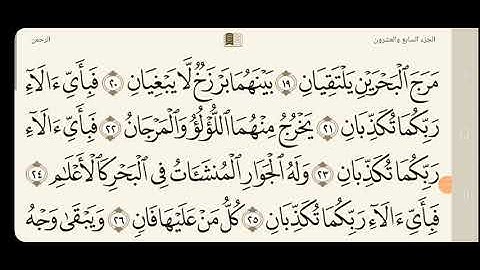 الجزء السابع والعشرون
الرحمن
مَرَجَ ٱلْبَحْرَيْنِ يَلْتَقِيَانِ ١٩ بَيْنَهُمَا بَرْزَخٌ لَّا يَبْغِيَانِ ٢٠ فَبِأَيِّ ءَالَآءِ
رَبِّكُمَا تُكَذِّبَانِ ٢١ يَخْرُجُ مِنْهُمَا ٱللُّؤْلُؤُ وَٱلْمَرْجَانُ ٢٢ فَبِأَيِّ ءَالَآءِ
رَبِّكُمَا تُكَذِّبَانِ ٢٣ وَلَهُ ٱلْجَوَارِ ٱلْمُنشَـَٔاتُ فِي ٱلْبَحْرِ كَٱلْأَعْلَٰمِ ٢٤
فَبِأَيِّ ءَالَآءِ رَبِّكُمَا تُكَذِّبَانِ ٢٥ كُلُّ مَنْ عَلَيْهَا فَانٍ ٢٦ وَيَبْقَىٰ وَجْهُ